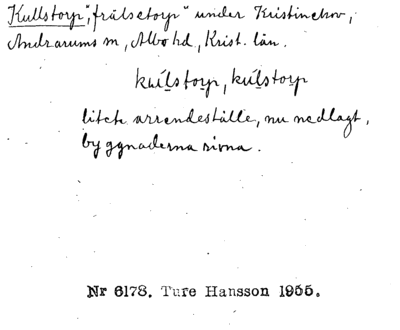 Kullstorp, "frälsetorp" under Kristinehov,
Andrarums sn, Albo hd, Krist. län.
kuls torp, kuls torp
litet arrendeställe, nu nedlagt,
byggnaderna rivna.
Nr 6178. Ture Hansson 1955.